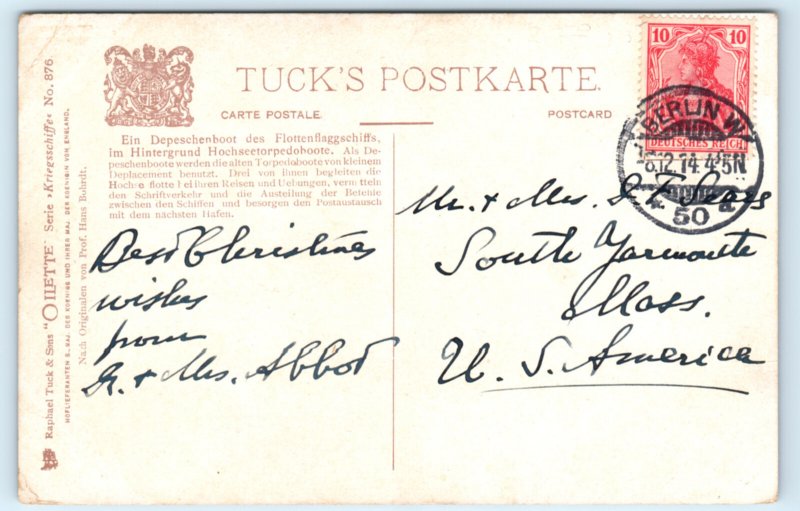 TUCK'S POSTKARTE.
CARTE POSTALE
POSTCARD
Ein Depeschenboot des Flottenflaggschiffs,
im Hintergrund Hochseetorpedoboote. Als De-
peschenboote werden die alten Torpedoboote von kleinem
Deplacement benutzt. Drei von ihnen begleiten die
Hochseeflotte bei ihren Reisen und Uebungen, vermitteln
den Schriftverkehr und die Austeilung der Befehle
zwischen den Schiffen und besorgen den Postaustausch
mit dem nächsten Hafen.
Raphael Tuck & Sons "OILETTE" Serie »Kriegsschiffe« No. 876
HOFLIEFERANTEN S. MAJ. DES KOENIGS UND IHRER MAJ. DER KOENIGIN VON ENGLAND.
Nach Originalen von Prof. Hans Bohrdt.
Best Christmas
wishes
from
& Mrs. Abbot
10 10
DEUTSCHES REICH
BERLIN W
12.14. 4-5N
50 a
Mr. & Mrs. Sears
South Yarmouth
Mass.
U. S. America